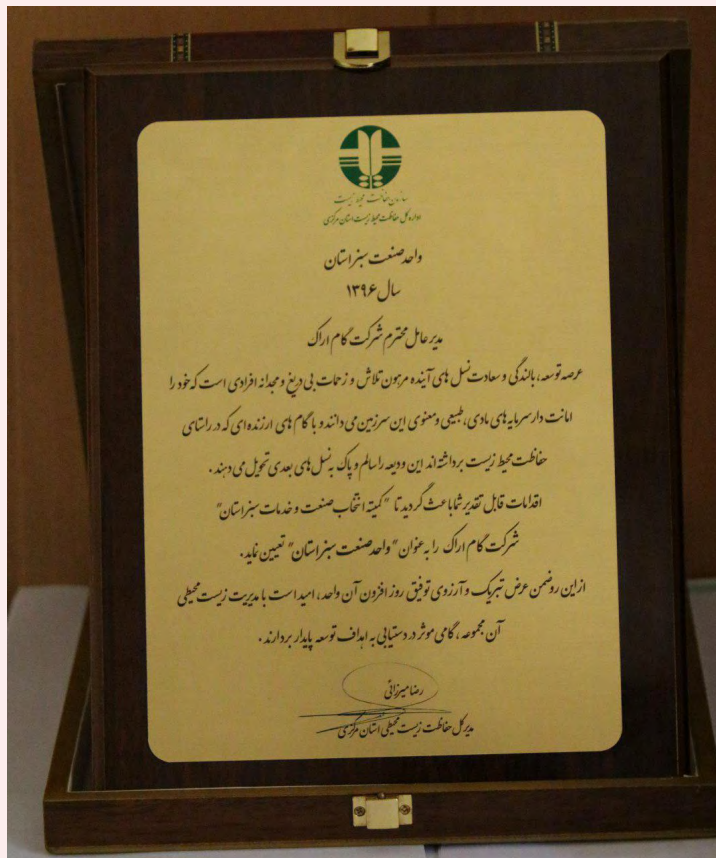 سازمان حفاظت محیط زیست
اداره کل حفاظت محیط زیست استان مرکزی
واحد صنعت سبز استان
سال ۱۳۹۶
مدیر عامل محترم شرکت گام اراک
عرصه توسعه، بالندگی و سعادت نسل های آینده مرهون تلاش و زحمات بی دریغ و مجدانه افرادی است که خود را
امانت دار سرمایه های مادی، طبیعی و معنوی این سرزمین می دانند و با گام های ارزنده ای که در راستای
حفاظت محیط زیست برداشته اند این ودیعه را سالم و پاک به نسل های بعدی تحویل می دهند.
اقدامات قابل تقدیر شما باعث گردید تا "کمیته انتخاب صنعت و خدمات سبز استان"
شرکت گام اراک را به عنوان "واحد صنعت سبز استان" تعیین نماید.
از این رو ضمن عرض تبریک و آرزوی توفیق روز افزون آن واحد، امید است با مدیریت زیست محیطی
آن مجموعه، گامی موثر در دستیابی به اهداف توسعه پایدار بردارند.
رضا میرزائی
مدیر کل حفاظت زیست محیطی استان مرکزی